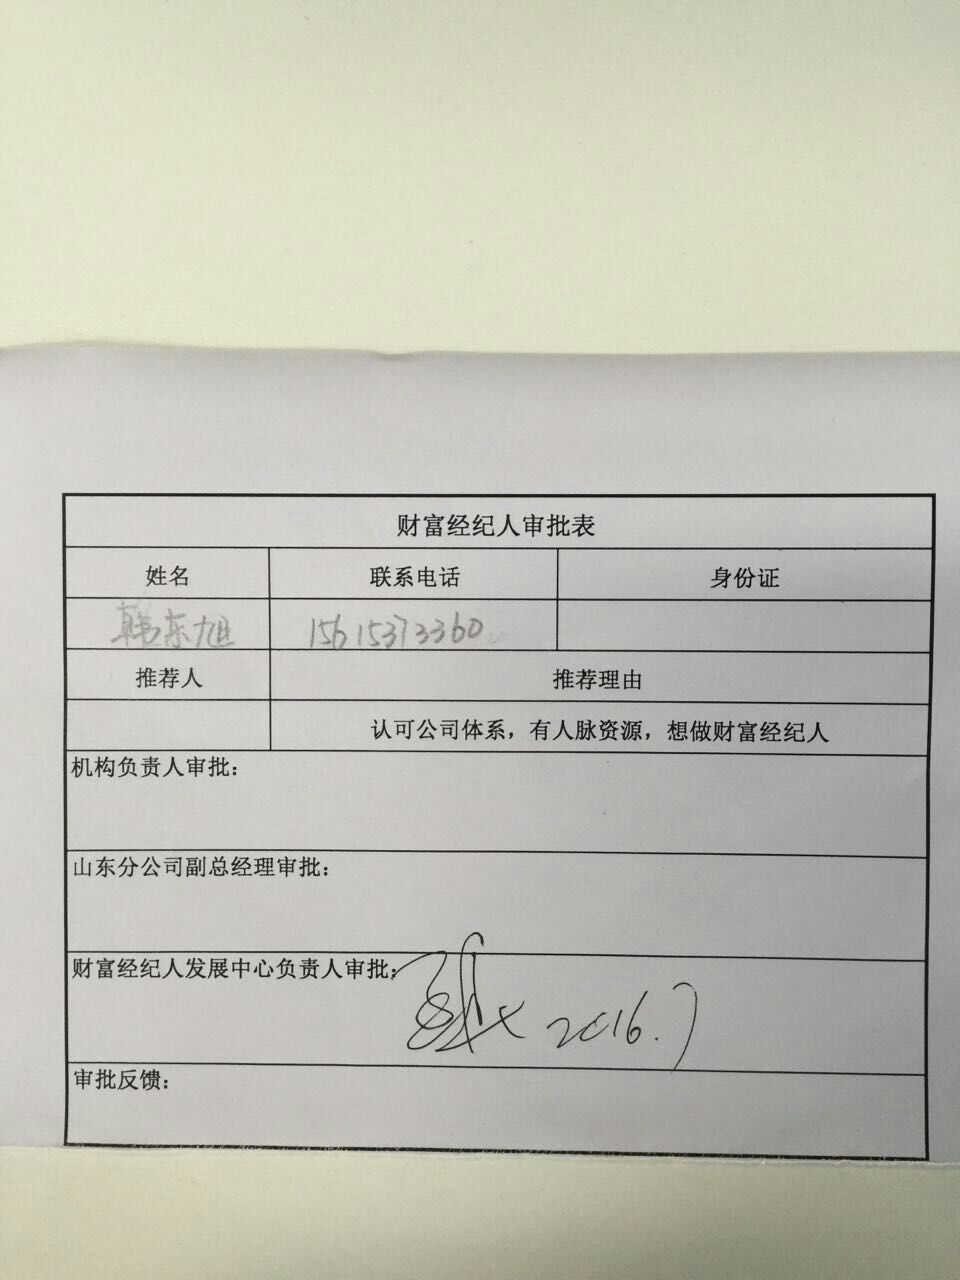 财富经纪人审批表
姓名 联系电话 身份证
韩东旭 15615373360
推荐人 推荐理由
认可公司体系，有人脉资源，想做财富经纪人
机构负责人审批：
山东分公司副总经理审批：
财富经纪人发展中心负责人审批：
2016.7
审批反馈：